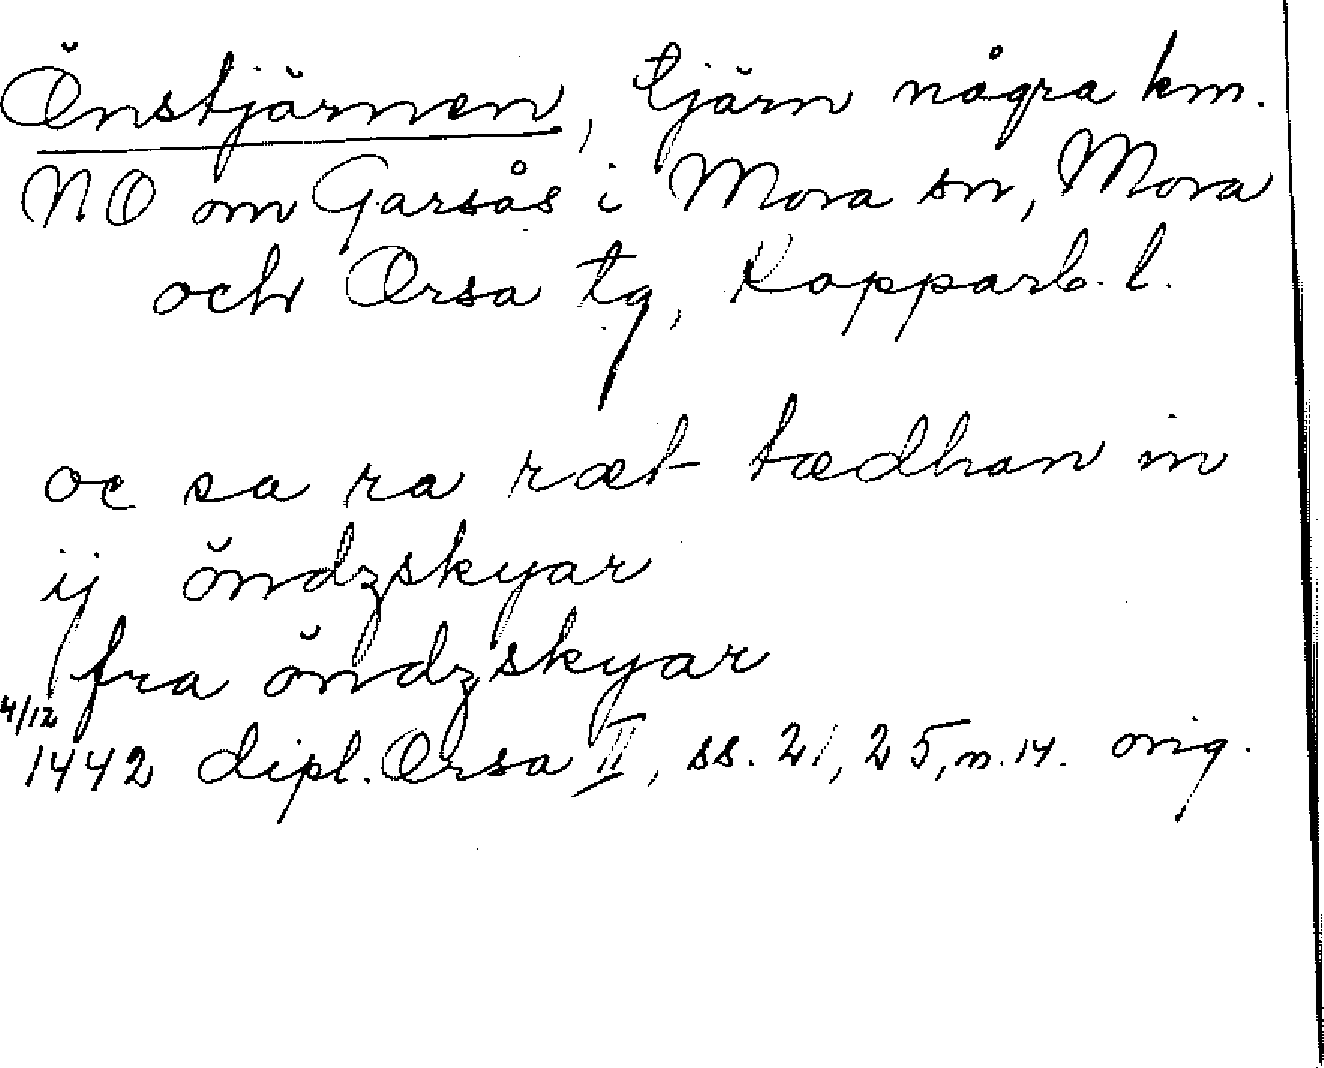 Önstjärnen, tjärn några km.
NO om Garsås i Mora sn, Mora
och Orsa tg, Kopparb. l.
oc sa ra ræt tædhan in
ij öndzskyar
fra öndzskyar
4/12
1442 dipl. Orsa II, ss. 21, 25, n. 14. orig.